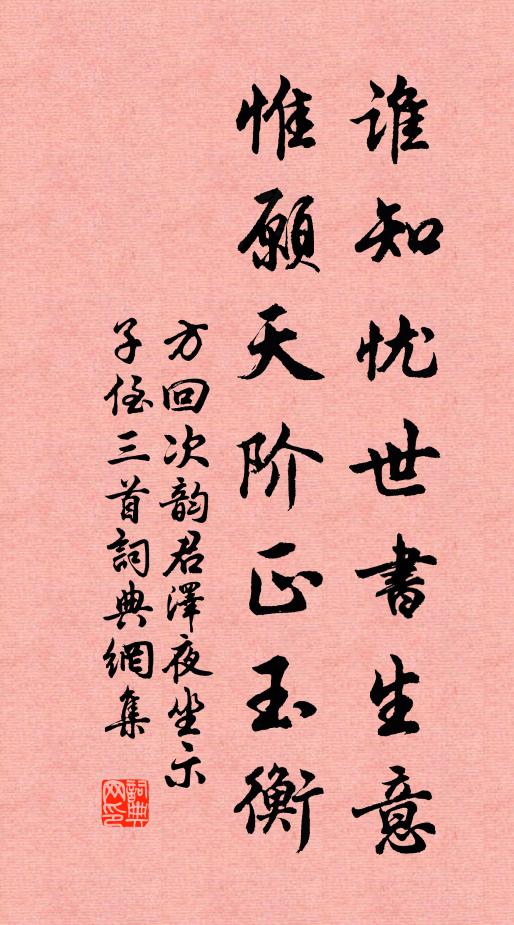 谁知忧世书生意
惟愿天阶正玉衡
方回次韵君澤夜坐示
子侄三首詞典網集
詞典
网印